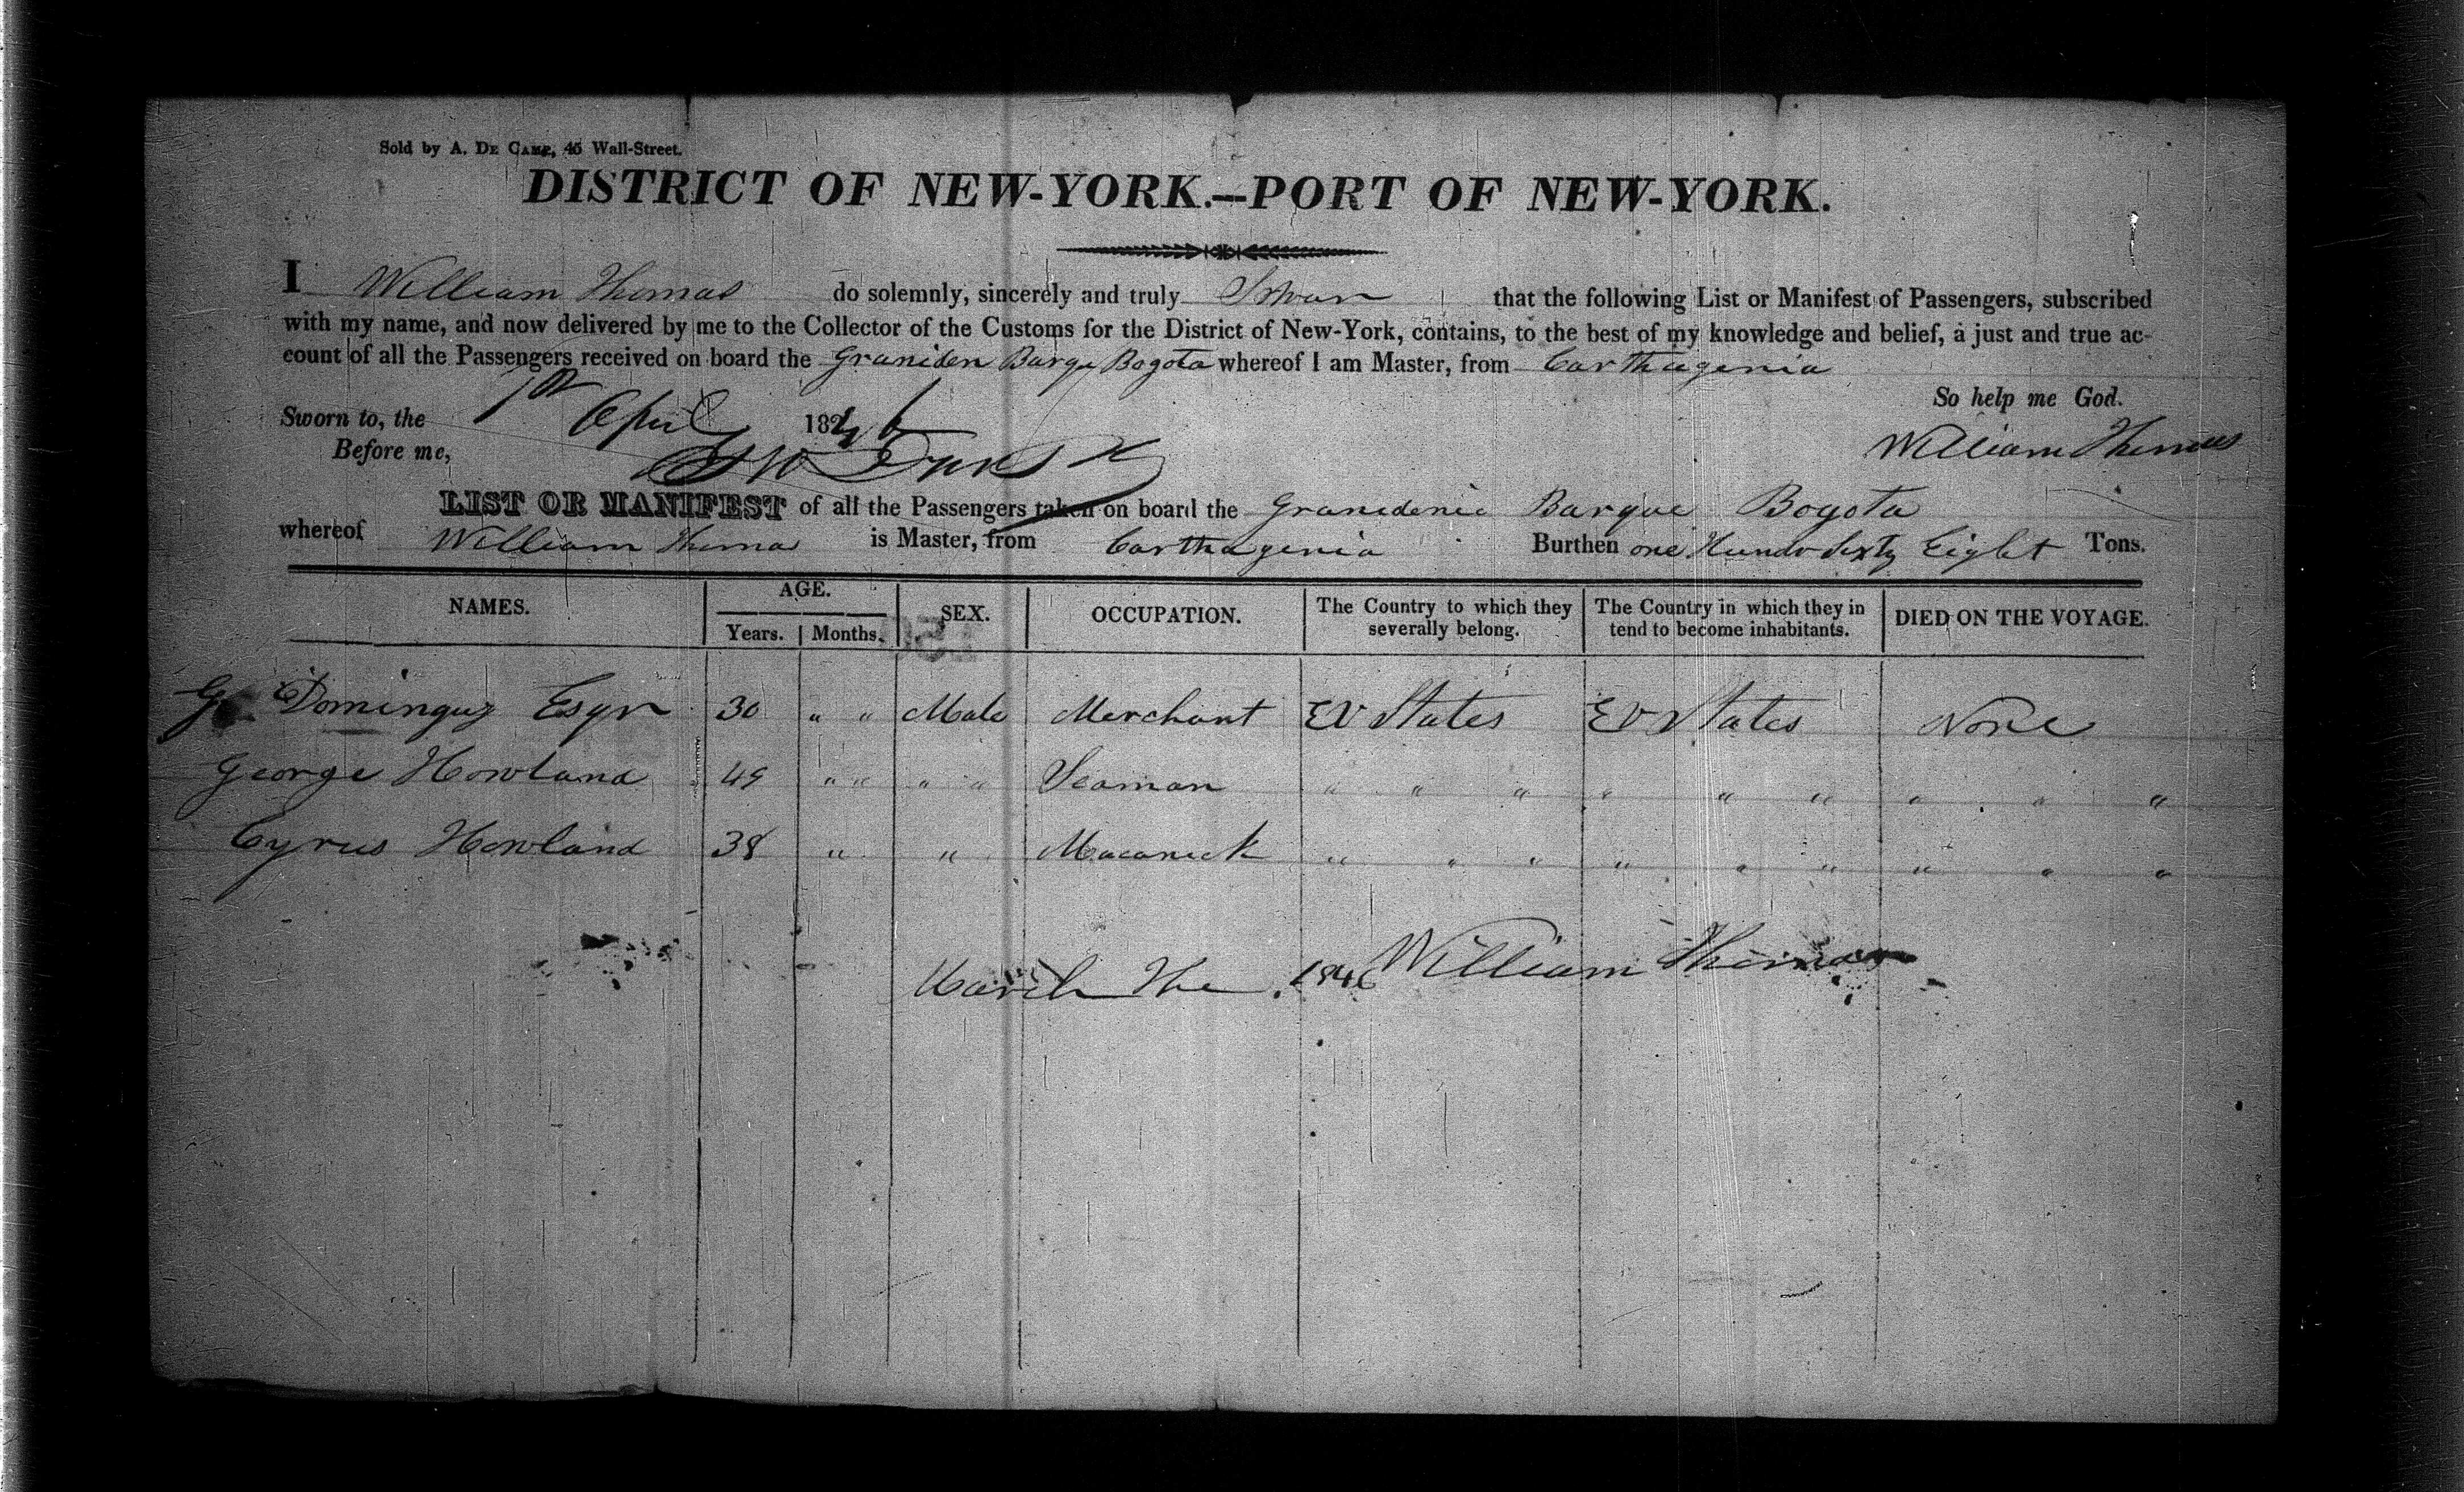 Sold by A. DE CAMP, 45 Wall-Street.
DISTRICT OF NEW-YORK.—PORT OF NEW-YORK.
I William Thomas do solemnly, sincerely and truly that the following List or Manifest of Passengers, subscribed
with my name, and now delivered by me to the Collector of the Customs for the District of New-York, contains, to the best of my knowledge and belief, a just and true ac-
count of all the Passengers received on board the Graniden Barque Bogota whereof I am Master, from Carthagenia
So help me God.
Sworn to, the 1st April 1846
Before me,
William Thomas
LIST OR MANIFEST of all the Passengers taken on board the Granidenie Barque Bogota
whereof William Thomas is Master, from Carthagenia Burthen one Hundr Sixty Eight Tons.
NAMES. AGE. SEX. OCCUPATION. The Country to which they severally belong. The Country in which they in tend to become inhabitants. DIED ON THE VOYAGE.
Years. Months.
G Dominguz Esqr 30 " " Male Merchant States States None
George Howland 49 " " " " Seaman " " " " " " " " "
Cyrus Howland 38 " " Macanick " " " " " " " " "
March The 1846 William Thomas